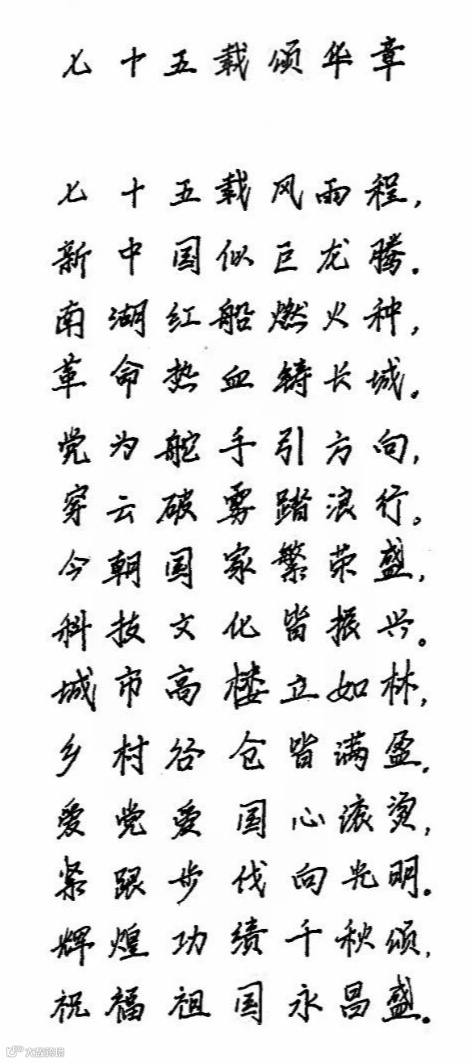 七十五载颂华章
七十五载风雨程,
新中国似巨龙腾。
南湖红船燃火种,
革命热血铸长城。
党为舵手引方向,
穿云破雾踏浪行。
今朝国家繁荣盛,
科技文化皆振兴。
城市高楼立如林,
乡村谷仓皆满盈。
爱党爱国心滚烫,
紧跟步伐向光明。
辉煌功绩千秋颂,
祝福祖国永昌盛。